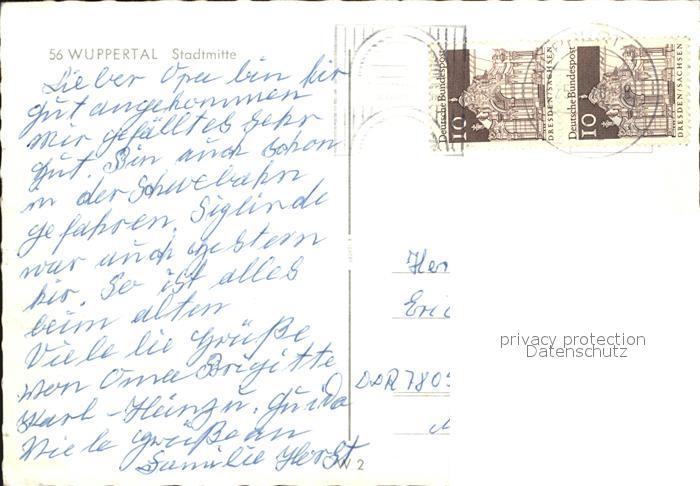 56 WUPPERTAL Stadtmitte
Lieber Opa bin hir
gut angekommen
mir gefälltes sehr
gut. Bin auch schon
in der Schwebahn
gefahren. Siglinde
war auch gestern
hir. So ist alles
beim alten
Viele lie Grüße
von Oma Brigitte
Karl-Heinz u. Guido
Viele Grüße an
Familie Horst
W 2
Deutsche Bundespost
10
DRESDEN/SACHSEN
Deutsche Bundespost
10
DRESDEN/SACHSEN
Her
Eric
DDR 7805
privacy protection
Datenschutz